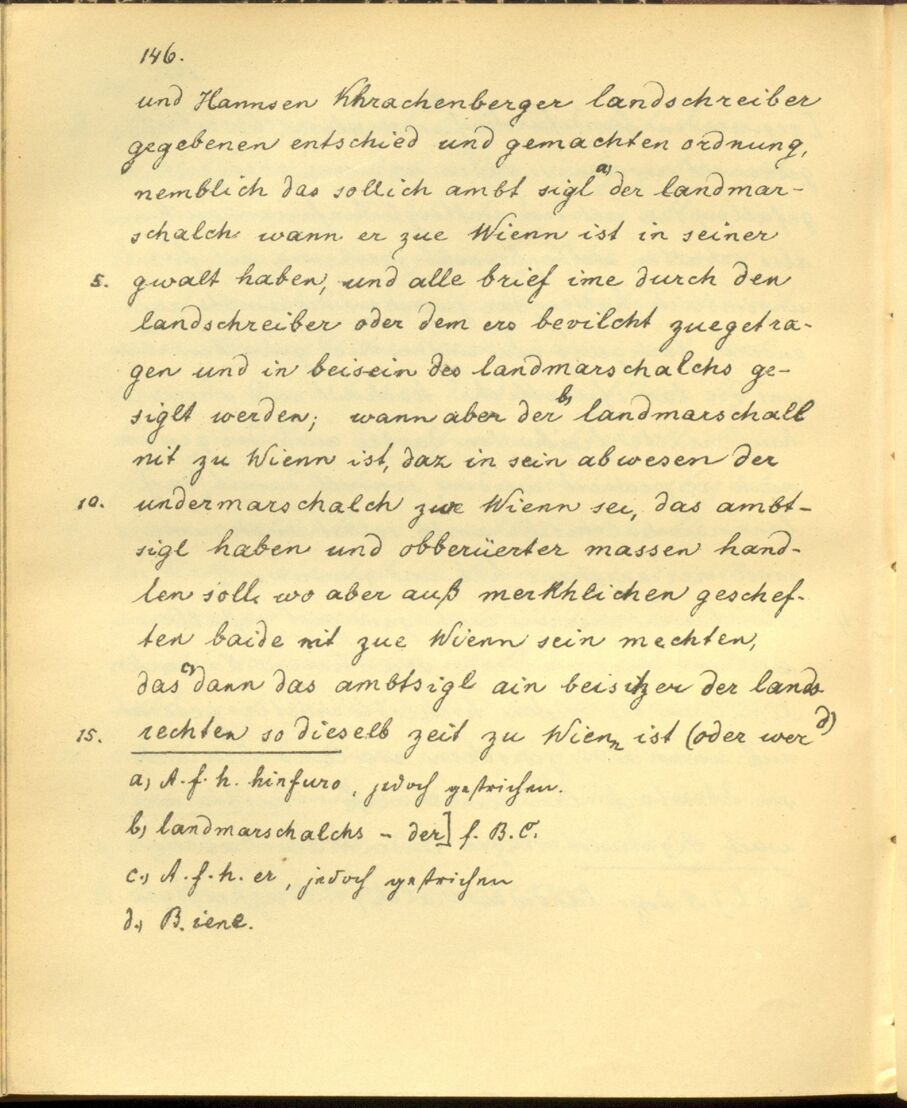 146.
und Hannsen Khrachenberger landschreiber
gegebenen entschied und gemachten ordnung,
nemblich das sollich ambt sigl a) der landmar-
schalch wann er zue Wienn ist in seiner
5. gwalt haben, und alle brief ime durch den
landschreiber oder dem ers bevilcht zuegetra-
gen und in beisein des landmarschalchs ge-
siglt werden; wann aber der b) landmarschall
nit zu Wienn ist, daz in sein abwesen der
10. undermarschalch zue Wienn sei, das ambt-
sigl haben und obberüerter massen hand-
len soll, wo aber auß merkhlichen geschef-
ten baide nit zue Wienn sein mechten,
das c) dann das ambtsigl ain beisitzer der lands
15. rechten so dieselb zeit zu Wienn ist (oder wer d)
a) A. f. h. hinfuro, jedoch gestrichen.
b) landmarschalchs - der] f. B. C.
c) A. f. h. er, jedoch gestrichen
d) B. iene.